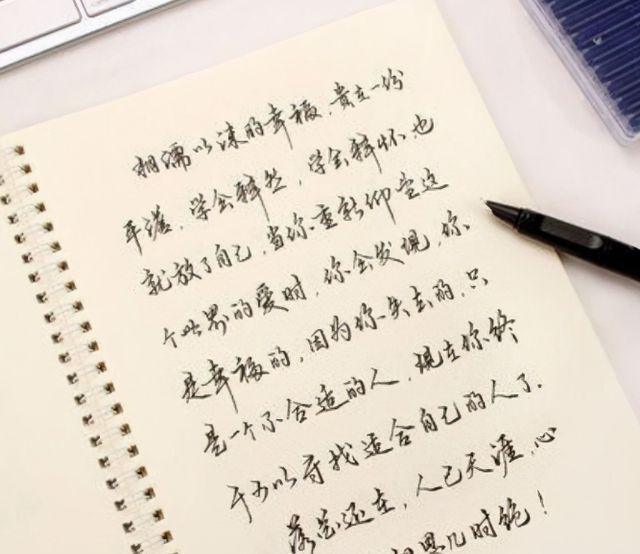 相濡以沫的幸福，贵在一份
平淡，学会释然，学会释怀，也
就放了自己，当你重新仰望这
个世界的爱时，你会发现，你
是幸福的，因为你失去的，只
是一个不合适的人，现在你终
于可以寻找适合自己的人了．
落花还在，人已天涯，心
思几时绝！